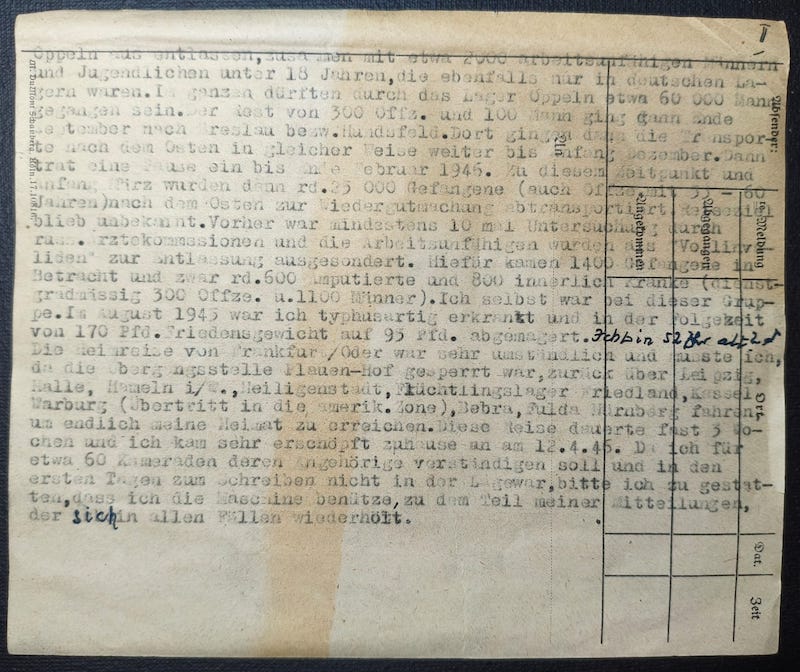 Oppeln aus entlassen,zusammen mit etwa 2000 arbeitsunfähigen Männern
und Jugendlichen unter 18 Jahren,die ebenfalls nur in deutschen La-
gern waren.Im ganzen dürften durch das Lager Oppeln etwa 60 000 Mann
gegangen sein.Der Rest von 300 Offz. und 100 Mann ging dann Ende
September nach Breslau bezw.Hundsfeld.Dort gingen dann die Transpor-
te nach dem Osten in gleicher Weise weiter bis Anfang Dezember.Dann
trat eine Pause ein bis Ende Februar 1946. Zu diesem Zeitpunkt und
Anfang März wurden dann rd.25 000 Gefangene (auch Offze.mit 55 - 60
Jahren)nach dem Osten zur Wiedergutmachung abtransportiert.Reiseziel
blieb unbekannt.Vorher war mindestens 10 mal Untersuchung durch
russ. Ärztekommissionen und die Arbeitsunfähigen wurden als "Vollinva-
liden" zur Entlassung ausgesondert. Hiefür kamen 1400 Gefangene in
Betracht und zwar rd.600 Amputierte und 800 innerlich Kranke (dienst-
gradmässig 300 Offze. u.1100 Männer).Ich selbst war bei dieser Grup-
pe.Im August 1945 war ich typhusartig erkrankt und in der Folgezeit
von 170 Pfd.Friedensgewicht auf 95 Pfd. abgemagert. Ich bin 52 Jhr alt
Die Heimreise von Frankfurt/Oder war sehr umständlich und musste ich,
da die Übergangsstelle Plauen-Hof gesperrt war,zurück über Leipzig,
Halle, Hameln i/W.,Heiligenstadt,Flüchtlingslager Friedland,Kassel
Warburg (Übertritt in die amerik.Zone),Bebra,Fulda Nürnberg fahren,
um endlich meine Heimat zu erreichen.Diese Reise dauerte fast 3 Wo-
chen und ich kam sehr erschöpft zuhause an am 12.4.46. Da ich für
etwa 60 Kameraden deren Angehörige verständigen soll und in den
ersten Tagen zum Schreiben nicht in der Lagewar,bitte ich zu gestat-
ten,dass ich die Maschine benütze,zu dem Teil meiner Mitteilungen,
der sich in allen Fällen wiederholt.
Absender:
Ort
Dat.
Zeit
die Meldung
Abgegangen
Angekommen